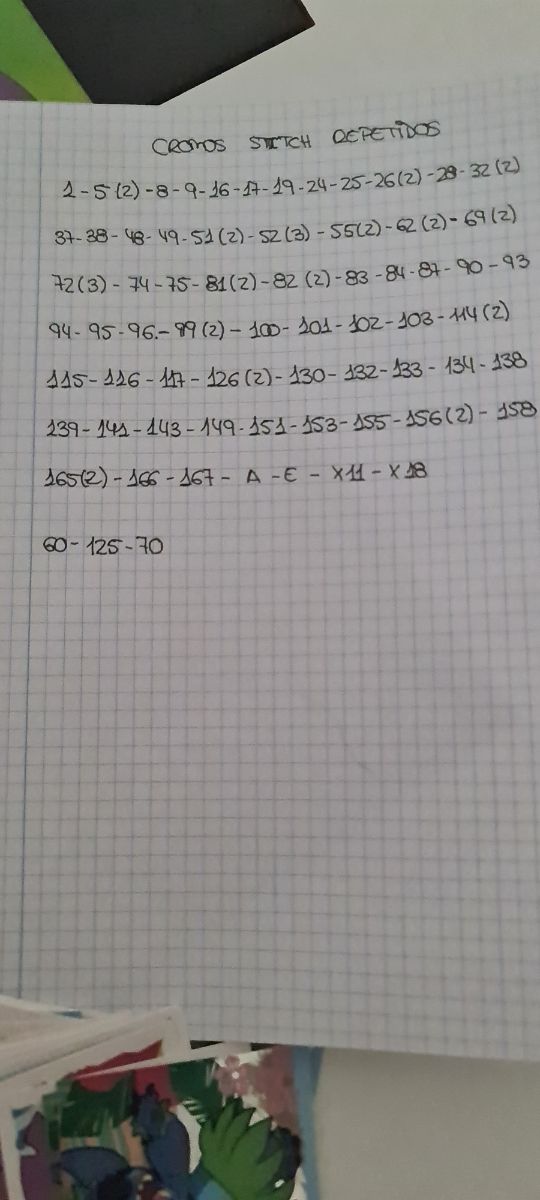 CROMOS STITCH REPETIDOS
1 - 5(2) - 8 - 9 - 16 - 17 - 19 - 24 - 25 - 26(2) - 28 - 32(2)
37 - 38 - 48 - 49 - 51(2) - 52(3) - 55(2) - 62(2) - 69(2)
72(3) - 74 - 75 - 81(2) - 82(2) - 83 - 84 - 87 - 90 - 93
94 - 95 - 96 - 99(2) - 100 - 101 - 102 - 103 - 114(2)
115 - 116 - 117 - 126(2) - 130 - 132 - 133 - 134 - 138
139 - 141 - 143 - 149 - 151 - 153 - 155 - 156(2) - 158
165(2) - 166 - 167 - A - E - X11 - X18
60 - 125 - 70